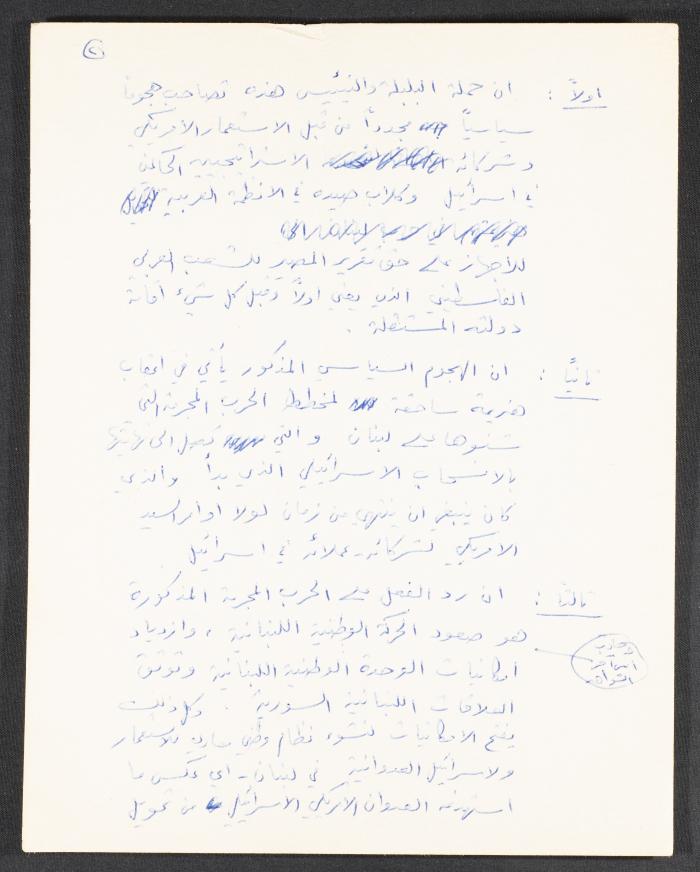 (٢)
اولاً : ان حملة البلبلة والتيئيس هذه تصاحب هجوماً
سياسياً مجدداً من قبل الاستعمار الامريكي
وشركائه الاستراتيجيين الحاكمين
في اسرائيل وكلاب صيده في الانظمة العربية
للأجهاز على حق تقرير المصير للشعب العربي
الفلسطيني الذي يعني اولاً وقبل كل شيء اقامة
دولته المستقلة .
ثانياً : ان الهجوم السياسي المذكور يأتي في اعقاب
هزيمة ساحقة لمخطط الحرب المجرمة التي
شنوها على لبنان والتي تصل الى نهايتها
بالانسحاب الاسرائيلي الذي بدأ والذي
كان ينبغي ان ينتهي من زمان لولا اوامر السيد
الامريكي لشركائه - عملائه في اسرائيل
ثالثاً : ان رد الفعل على الحرب المجرمة المذكورة
هو صعود الحركة الوطنية اللبنانية ، وازدياد
امكانيات الوحدة الوطنية اللبنانية وتوثق
العلاقات اللبنانية السورية . وكل ذلك
يفتح الامكانيات لنشوء نظام وطني معادي للاستعمار
ولاسرائيل العدوانية في لبنان - اي عكس ما
استهدفه العدوان الامريكي الاسرائيلي من تحويل